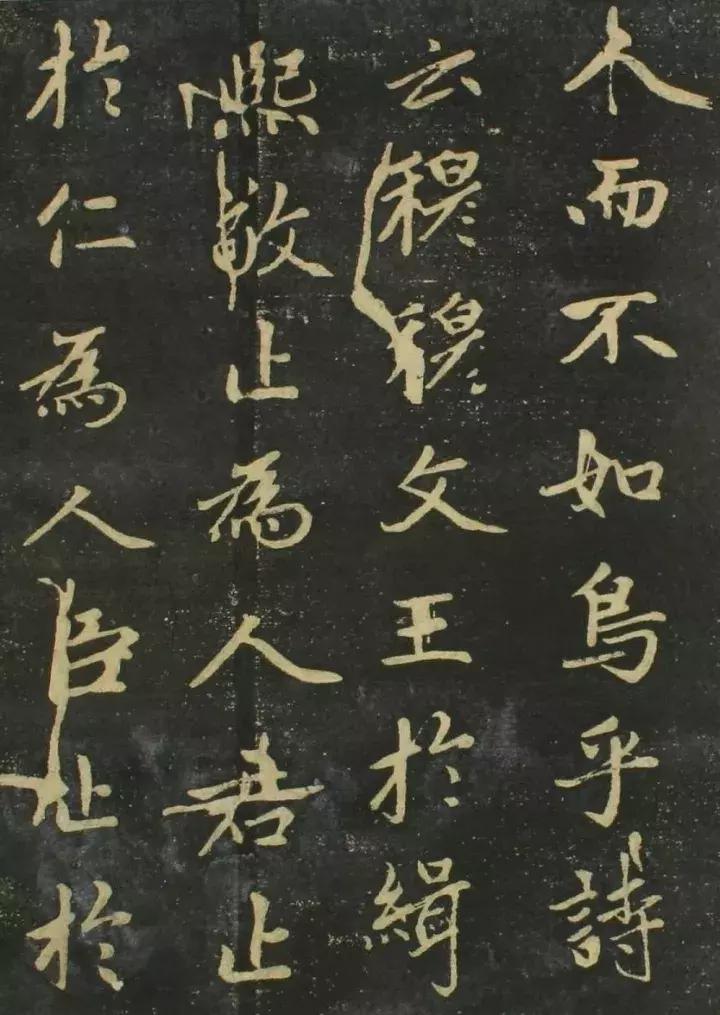 人而不如鳥乎詩
云穆穆文王於緝
熙敬止為人君止
於仁為人臣止於